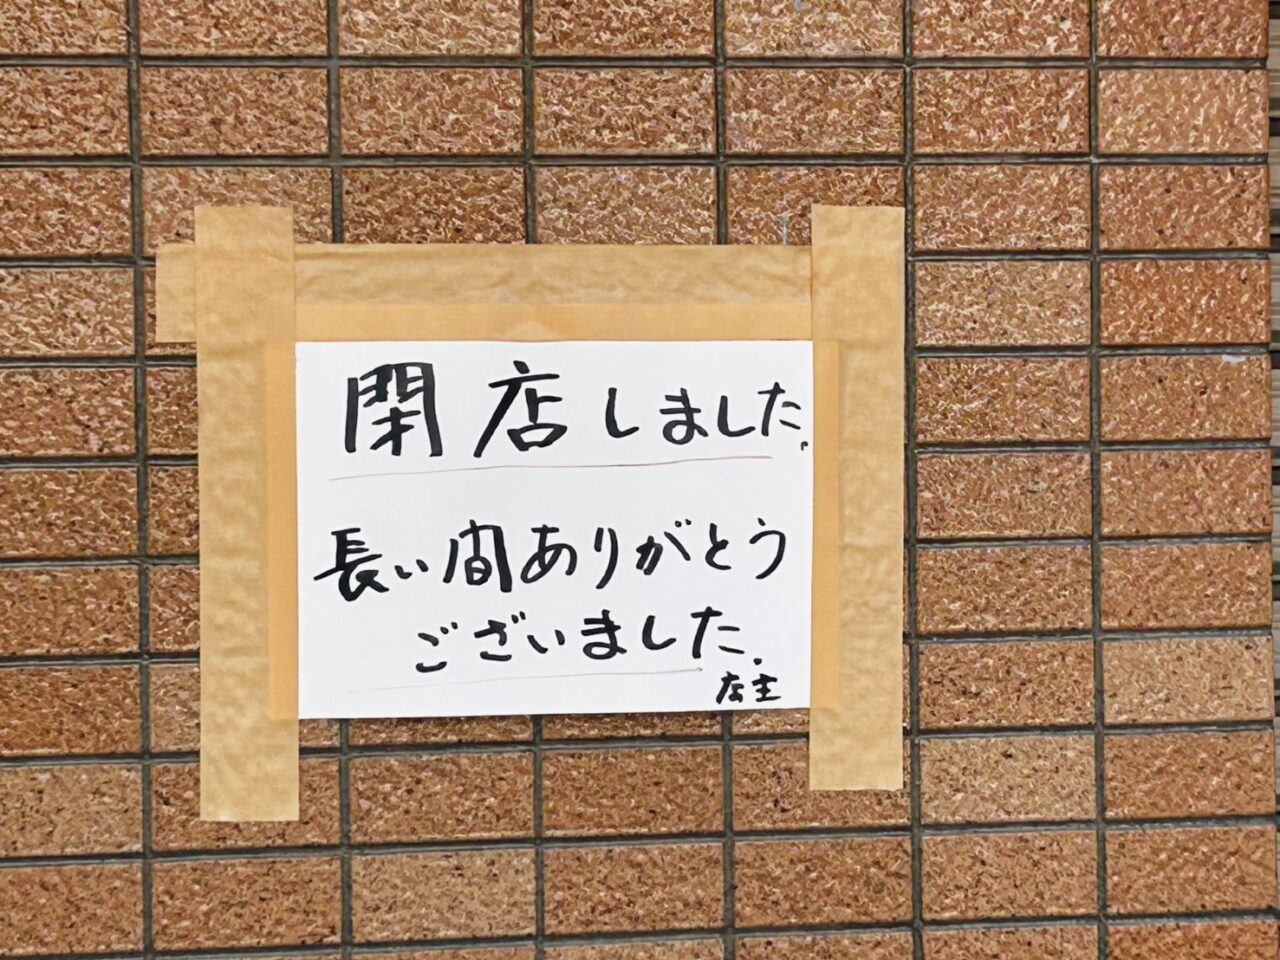 閉店しました。
長い間ありがとう
ございました。
店主